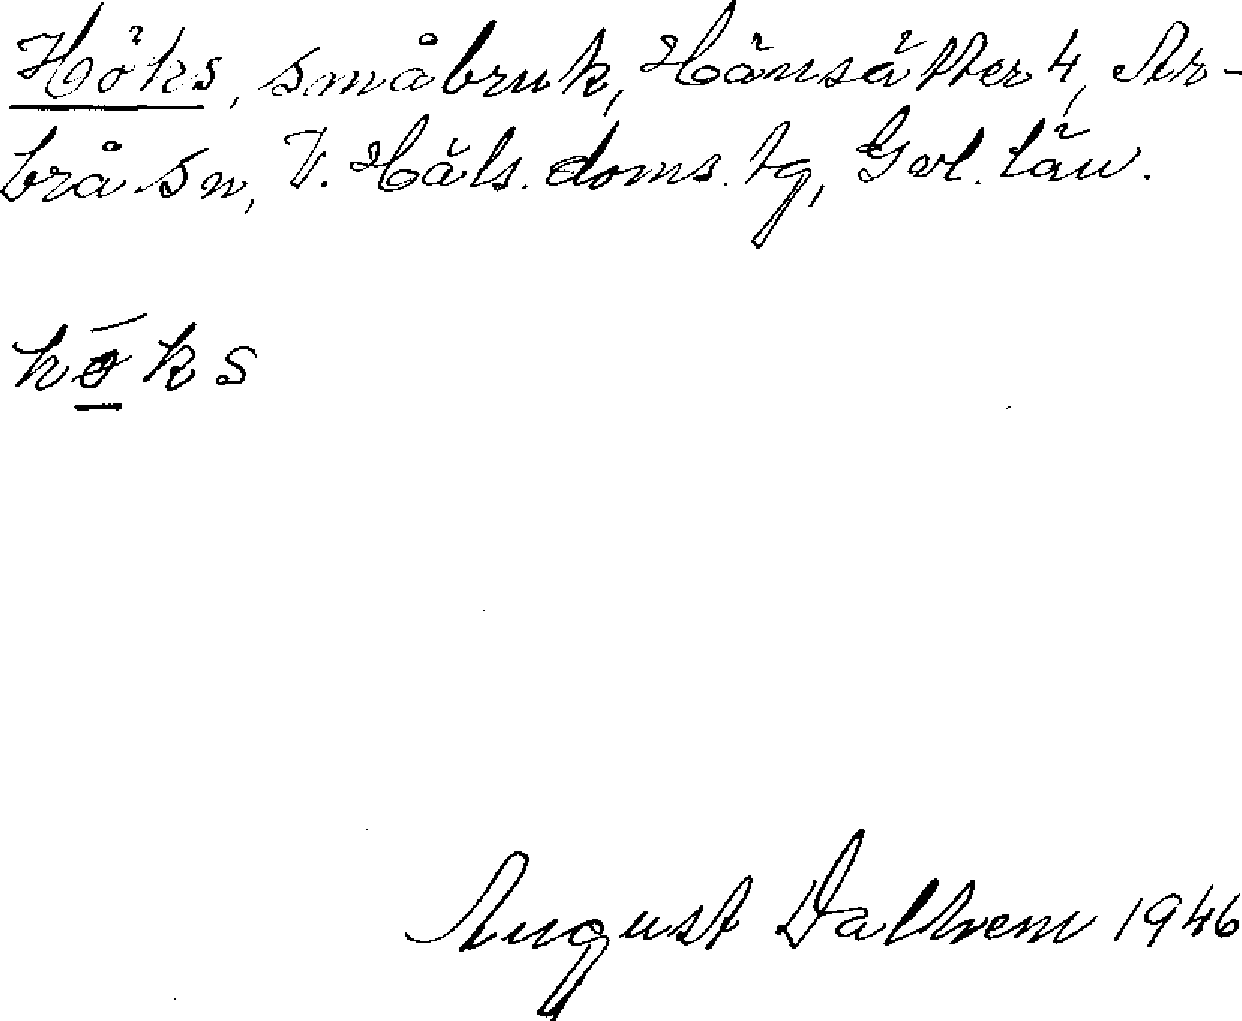 Höks, småbruk, Hänsätter 4, Ar-
brå sn, V. Häls. doms. tg, Gvl. län.
hȫ̱ks
August Dalhem 1946